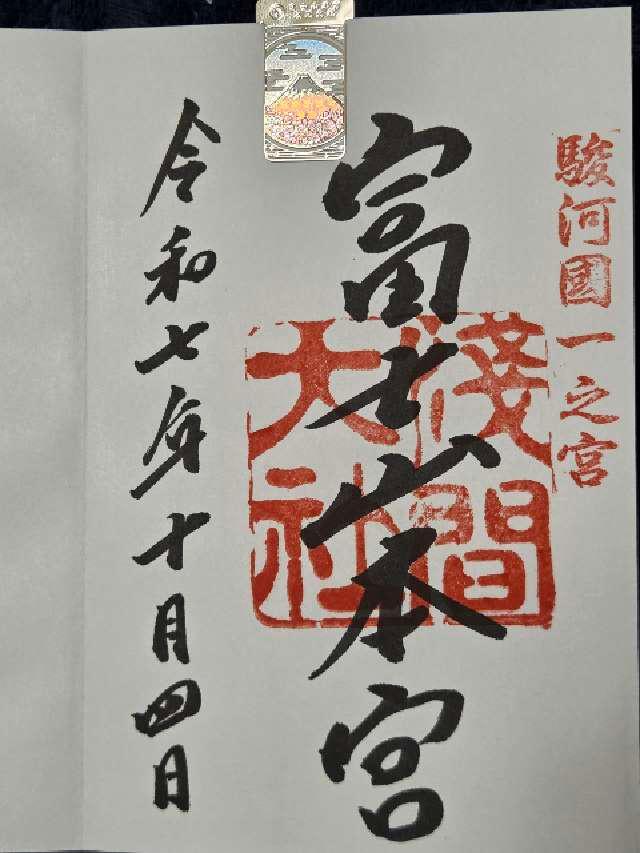 駿河國一之宮
富士山本宮
淺間大社
令和七年十月四日